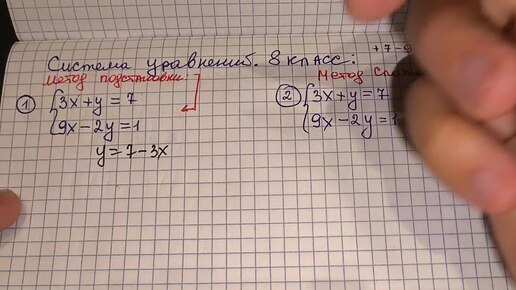 Система уравнений. 8 класс:
+7-9
метод подстановки:
① {3x+y=7
{9x-2y=1
y=7-3x
Метод
② {3x+y=7
{9x-2y=1